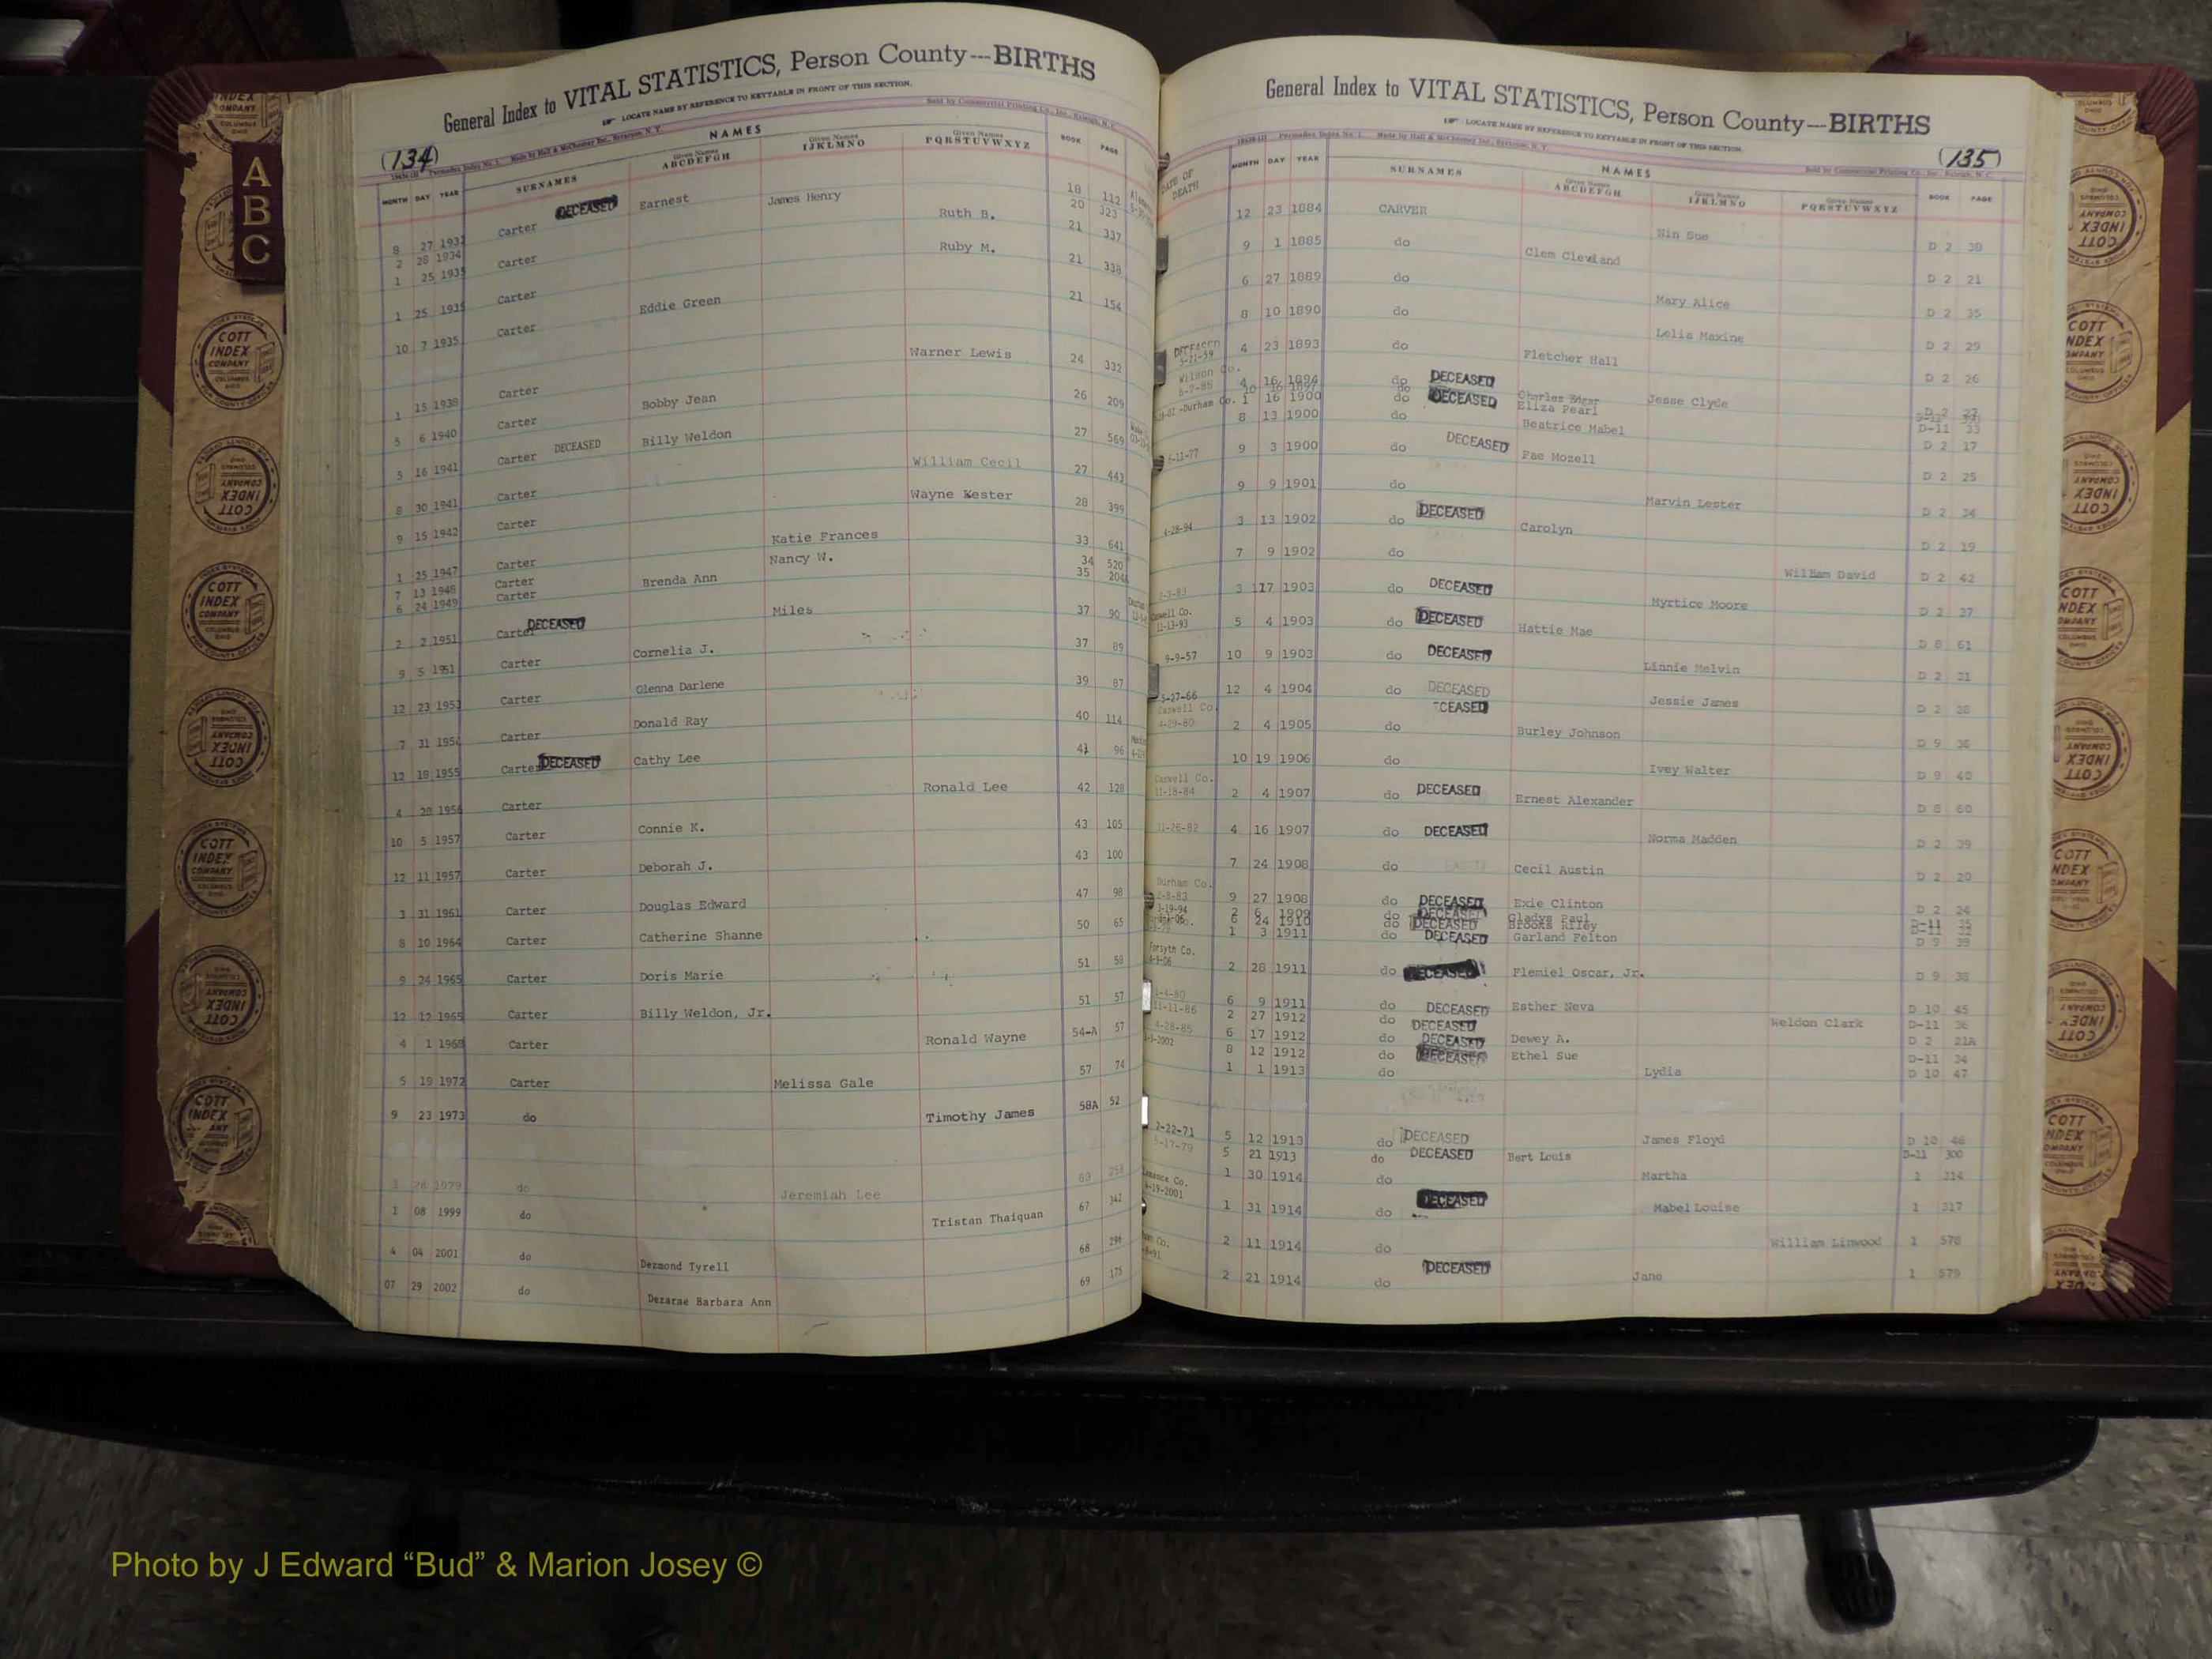 General Index to VITAL STATISTICS, Person County---BIRTHS
LOCATE NAME BY REFERENCE TO KEYTABLE IN FRONT OF THIS SECTION.
Sold by Commercial Printing Co., Inc., Raleigh, N. C.
(134)
Permadex Index No. 1. Made by Hall & McChesney Inc., Syracuse, N. Y.
NAMES
MONTH DAY YEAR SURNAMES Given Names ABCDEFGH Given Names IJKLMNO Given Names PQRSTUVWXYZ BOOK PAGE
8 27 Carter DECEASED Earnest James Henry 18 112
2 28 1934 20 323
1 25 1935 Carter Ruth B. 21 337
1 25 1935 Carter Ruby M. 21 338
10 7 1935 Carter Eddie Green 21 154
1 15 1938 Carter Warner Lewis 24 332
5 6 1940 Carter Bobby Jean 26 209
5 16 1941 Carter DECEASED Billy Weldon 27 569
8 30 1941 Carter William Cecil 27 443
9 15 1942 Carter Wayne Kester 28 399
1 25 1947 Carter Katie Frances 33 641
7 13 1948 Carter Nancy W. 34 520
6 24 1949 Carter Brenda Ann 35 204
2 2 1951 Carter DECEASED Miles 37 90
9 5 1951 Carter Cornelia J. 37 89
12 23 1953 Carter Glenna Darlene 39 87
7 31 1954 Carter Donald Ray 40 114
12 18 1955 Carter DECEASED Cathy Lee 41 96
4 28 1956 Carter Ronald Lee 42 128
10 5 1957 Carter Connie K. 43 105
12 11 1957 Carter Deborah J. 43 100
3 31 1961 Carter Douglas Edward 47 98
8 10 1964 Carter Catherine Shanne 50 65
9 24 1965 Carter Doris Marie 51 58
12 12 1965 Carter Billy Weldon, Jr. 51 57
4 1 1968 Carter Ronald Wayne 54-A 57
5 19 1972 Carter Melissa Gale 57 74
9 23 1973 do Timothy James 58A 52
28 1979 do Jeremiah Lee 258
1 08 1999 do Tristan Thaiquan 67 342
4 04 2001 do Dezmond Tyrell 68 296
07 29 2002 do Dezarae Barbara Ann 69 175
General Index to VITAL STATISTICS, Person County—BIRTHS
LOCATE NAME BY REFERENCE TO KEYTABLE IN FRONT OF THIS SECTION.
Permadex Index No. 1. Made by Hall & McChesney Inc., Syracuse, N. Y.
Sold by Commercial Printing Co., Inc., Raleigh, N. C.
(135)
NAMES
DATE OF DEATH MONTH DAY YEAR SURNAMES Given Names ABCDEFGH Given Names IJKLMNO Given Names PQRSTUVWXYZ BOOK PAGE
12 23 1884 CARVER Nin Sue D 2 38
9 1 1885 do Clem Cleveland D 2 21
6 27 1889 do Mary Alice D 2 35
8 10 1890 do Lelia Maxine D 2 29
DECEASED 5-21-59 4 23 1893 do Fletcher Hall D 2 26
Wilson Co. 6-7-85 4 16 1894 do DECEASED Jesse Clyde D 2 27
10 16 1897 do Charles Edgar
Durham Co. 1 16 1900 do DECEASED Eliza Pearl D-11 33
8 13 1900 do Beatrice Mabel D 2 17
6-11-77 9 3 1900 do DECEASED Fae Mozell D 2 25
9 9 1901 do Marvin Lester D 2 34
4-28-94 3 13 1902 do DECEASED Carolyn D 2 19
7 9 1902 do William David D 2 42
3 17 1903 do DECEASED Myrtice Moore D 2 37
Caswell Co. 12-13-93 5 4 1903 do DECEASED Hattie Mae D 8 61
9-9-57 10 9 1903 do DECEASED Linnie Melvin D 2 31
5-27-66 12 4 1904 do DECEASED Jessie James D 2 28
Caswell Co. 4-29-80 2 4 1905 do DECEASED Burley Johnson D 9 36
10 19 1906 do Ivey Walter D 9 40
Caswell Co. 11-18-84 2 4 1907 do DECEASED Ernest Alexander D 8 60
11-26-82 4 16 1907 do DECEASED Norma Madden D 2 39
7 24 1908 do Cecil Austin D 2 20
Durham Co. 2-8-83 9 27 1908 do DECEASED Exie Clinton D 2 24
3-19-94 2 6 1909 do DECEASED Gladys Paul D-11 35
6 24 1910 do DECEASED Brooks Riley D-11 32
1 3 1911 do DECEASED Garland Felton D 9 39
Forsyth Co. 2 28 1911 do DECEASED Flemiel Oscar, Jr. D 9 38
1-4-80 6 9 1911 do DECEASED Esther Neva D 10 45
11-11-86 2 27 1912 do DECEASED Weldon Clark D-11 36
4-28-85 6 17 1912 do DECEASED Dewey A. D 2 21A
8 12 1912 do DECEASED Ethel Sue D-11 34
1 1 1913 do Lydia D 10 47
2-22-71 5 12 1913 do DECEASED James Floyd D 10 46
5-17-79 5 21 1913 do DECEASED Bert Louis D-11 300
1 30 1914 do Martha 1 314
4-19-2001 1 31 1914 do DECEASED Mabel Louise 1 317
2 11 1914 do William Linwood 1 578
2 21 1914 do DECEASED Jane 1 579
A
B
C
COTT INDEX COMPANY COLUMBUS OHIO
Photo by J Edward “Bud” & Marion Josey ©